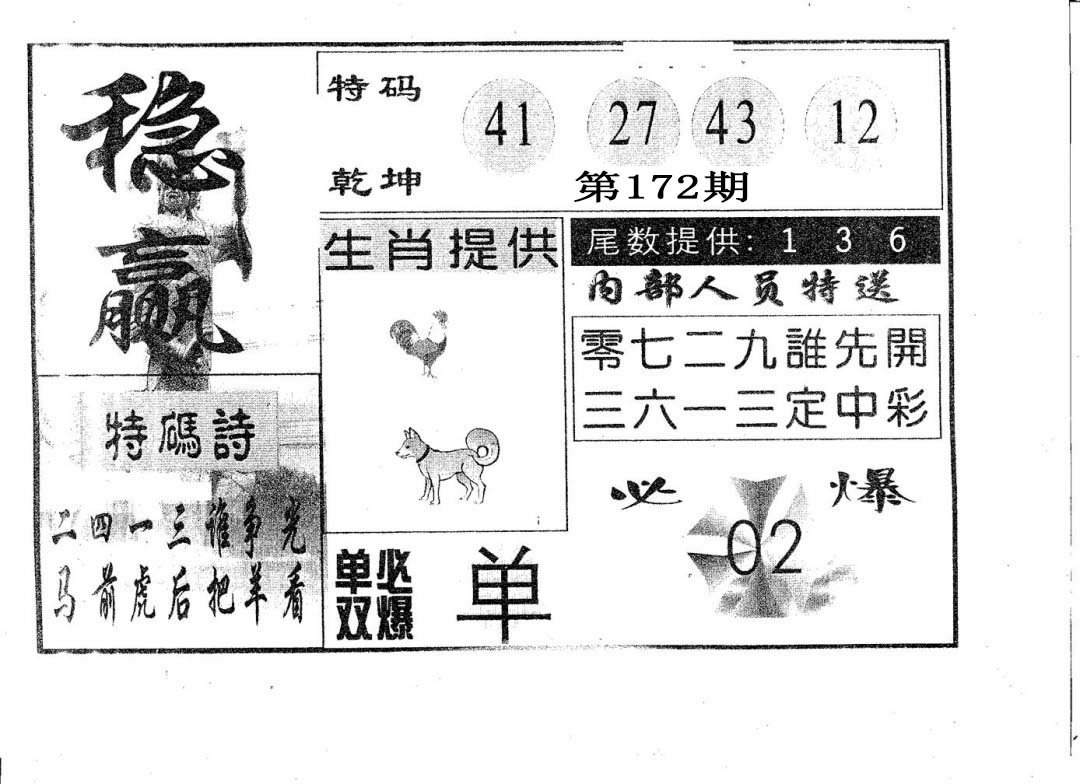 稳赢
特码
41 27 43 12
乾坤
第172期
生肖提供
尾数提供: 1 3 6
内部人员特送
零七二九誰先開
三六一三定中彩
特碼詩
二四一三谁争光
马前虎后把羊看
单双必爆
单
必爆
02